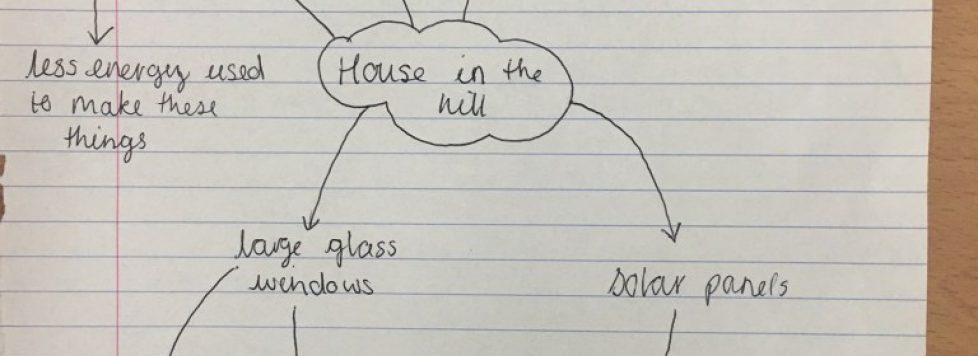 less energy used
to make these
things
House in the
hill
large glass
windows
solar panels